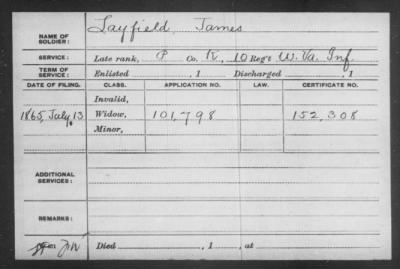 NAME OF SOLDIER: Layfield, James
SERVICE: Late rank, P Co. K, 10 Reg't W. Va. Inf.
TERM OF SERVICE: Enlisted , 1 Discharged , 1
DATE OF FILING. CLASS. APPLICATION NO. LAW. CERTIFICATE NO.
Invalid,
1865, July 13 Widow, 101,798 152,308
Minor,
ADDITIONAL SERVICES:
REMARKS:
Died , 1 , at